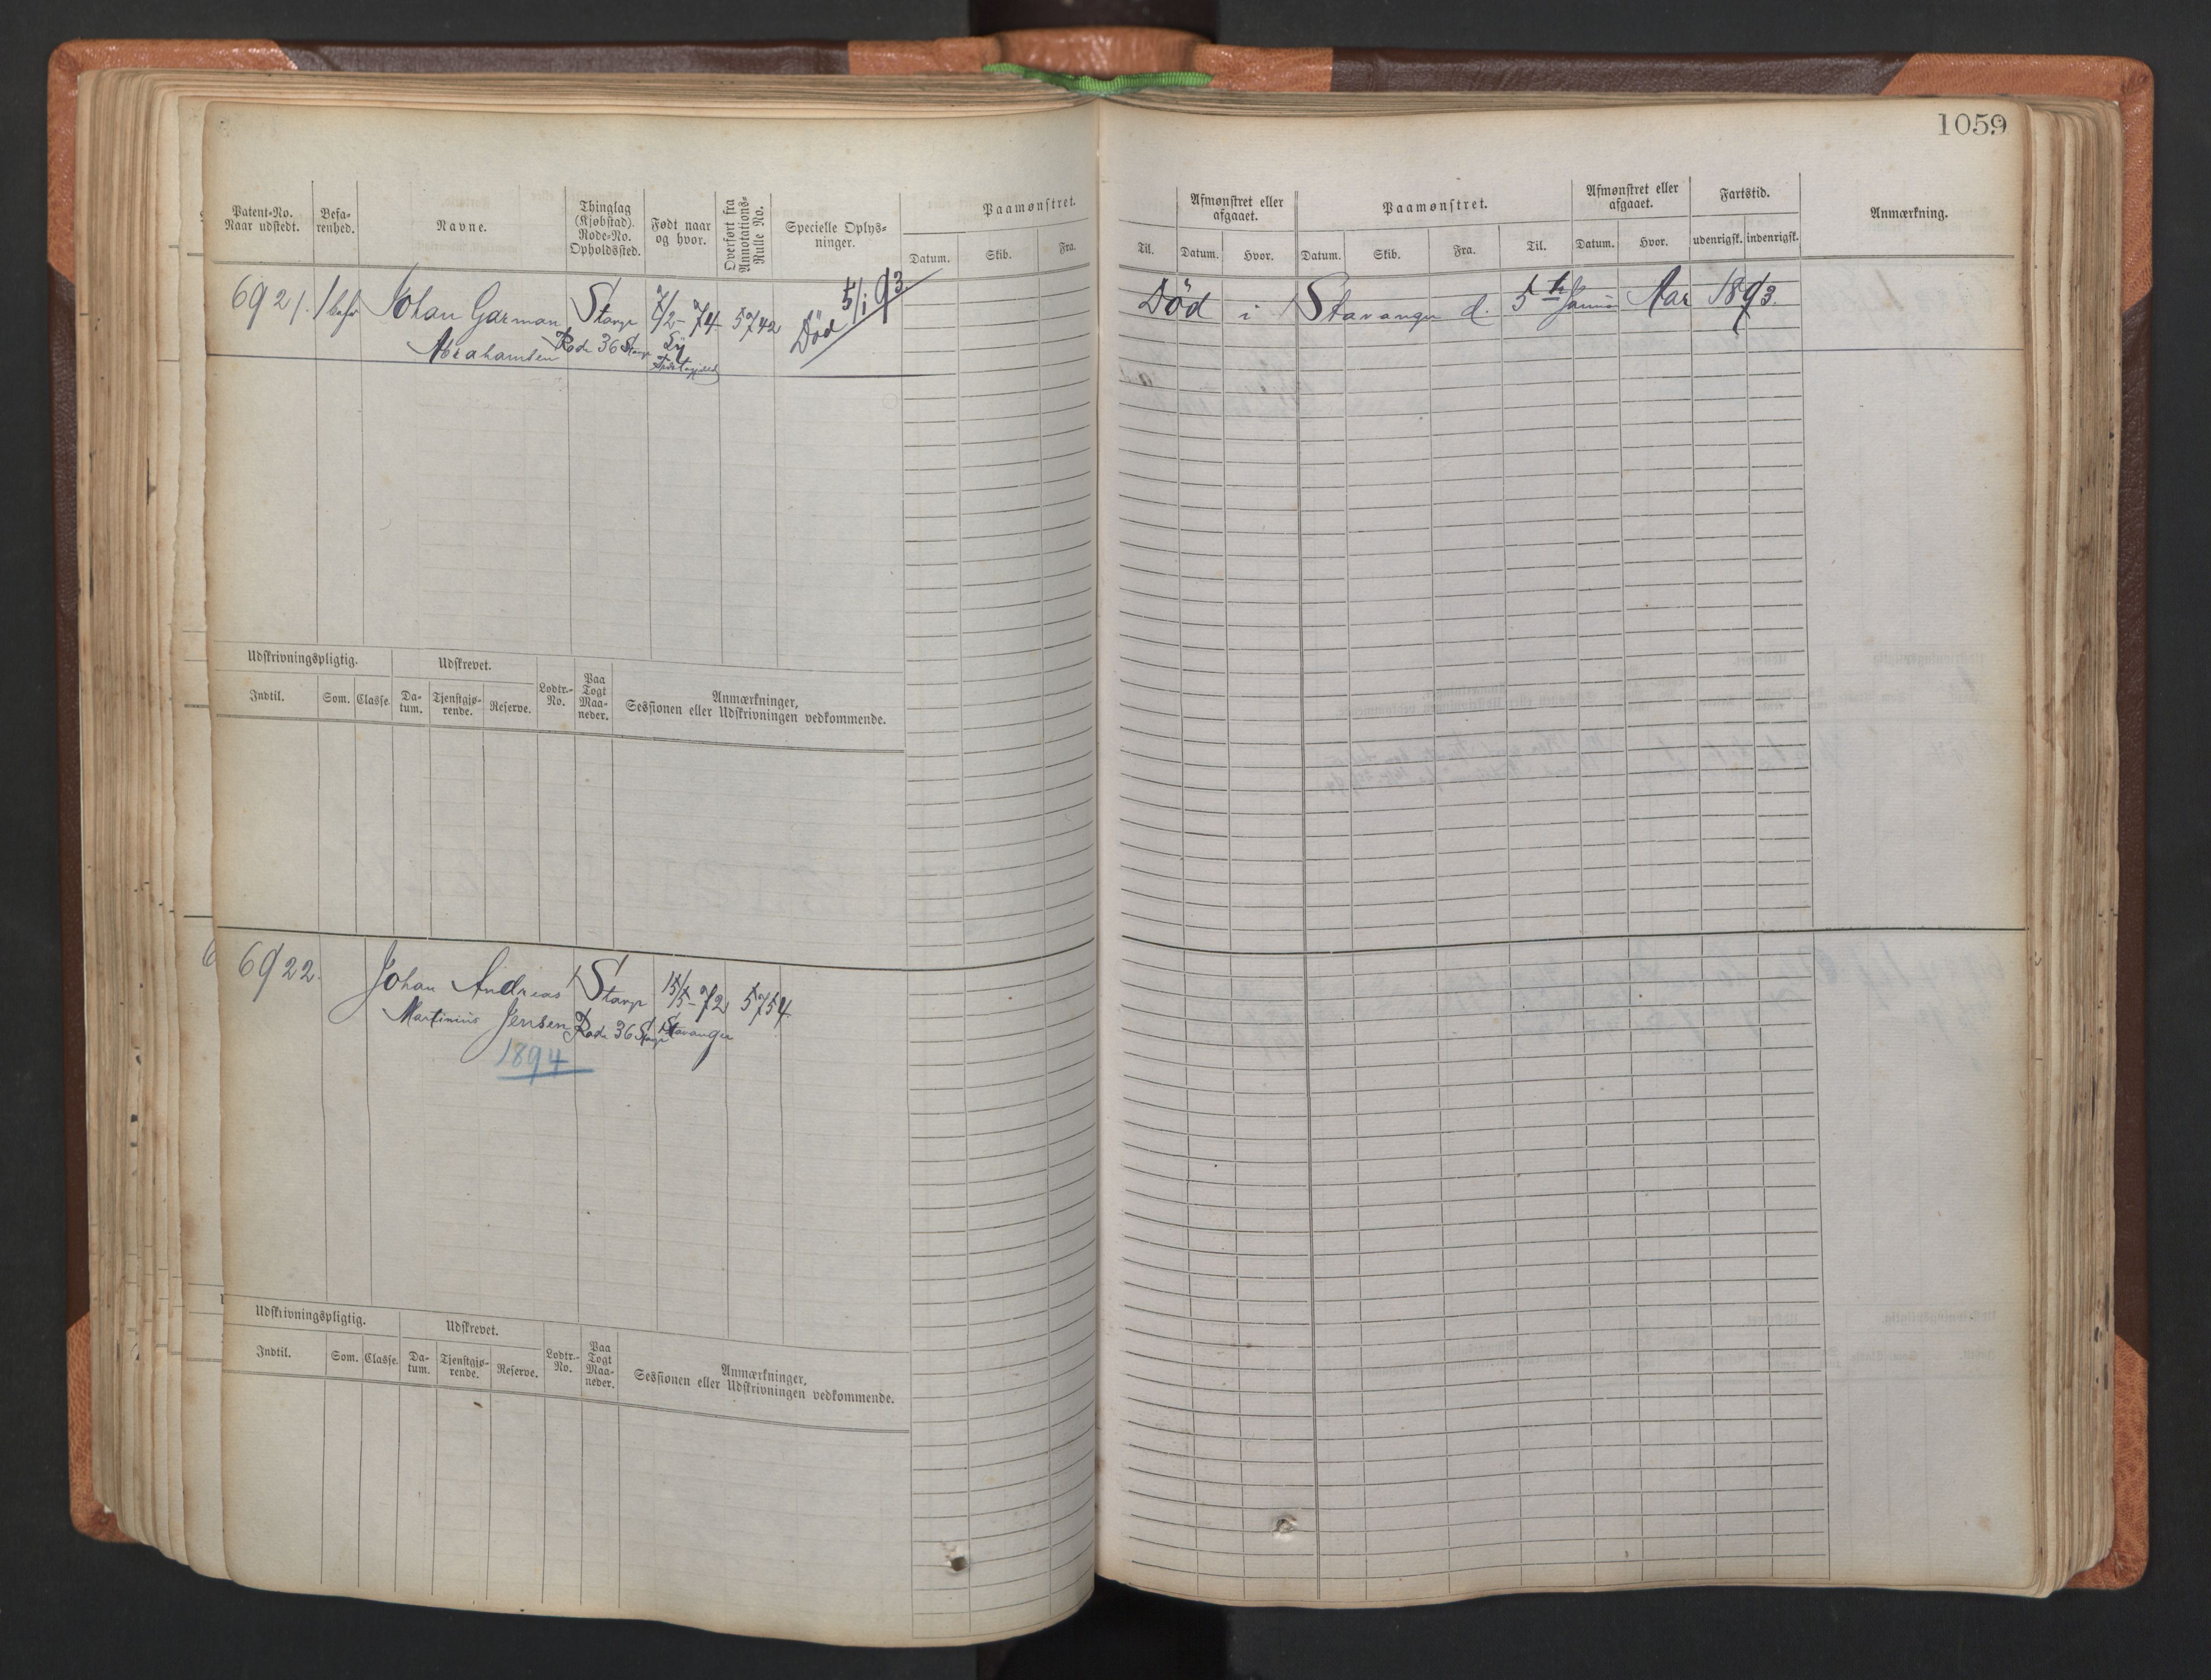 1059
Patent-No. Naar udstedt.
Befarenhed.
Navne.
Thinglag (Kjøbstad). Rode-No. Opholdssted.
Født naar og hvor.
Overført fra Annotations-Rulle No.
Specielle Oplysninger.
Paamønstret.
Datum.
Skib.
Fra.
Til.
Afmønstret eller afgaaet.
Datum.
Hvor.
Paamønstret.
Datum.
Skib.
Fra.
Til.
Afmønstret eller afgaaet.
Datum.
Hvor.
Fartstid.
udenrigsk.
indenrigsk.
Anmærkning.
6921. 1 bef. Johan Garman Stavgr 7/2-74 5742 Død 5/1 93.
Abrahamsen Rode 36 Stavgr
Død i Stavanger d. 5te Januar Aar 1893.
Udskrivningspligtig.
Udskrevet.
Indtil.
Som.
Classe.
Datum.
Tjenstgjørende.
Reserve.
Lodtr.-No.
Paa Togt Maaneder.
Anmærkninger,
Sessionen eller Udskrivningen vedkommende.
6922. Johan Andreas Stavgr 15/5-72 5754
Martinius Jensen Rode 36 Stavgr Stavanger
1894
Udskrivningspligtig.
Udskrevet.
Indtil.
Som.
Classe.
Datum.
Tjenstgjørende.
Reserve.
Lodtr.-No.
Paa Togt Maaneder.
Anmærkninger,
Sessionen eller Udskrivningen vedkommende.